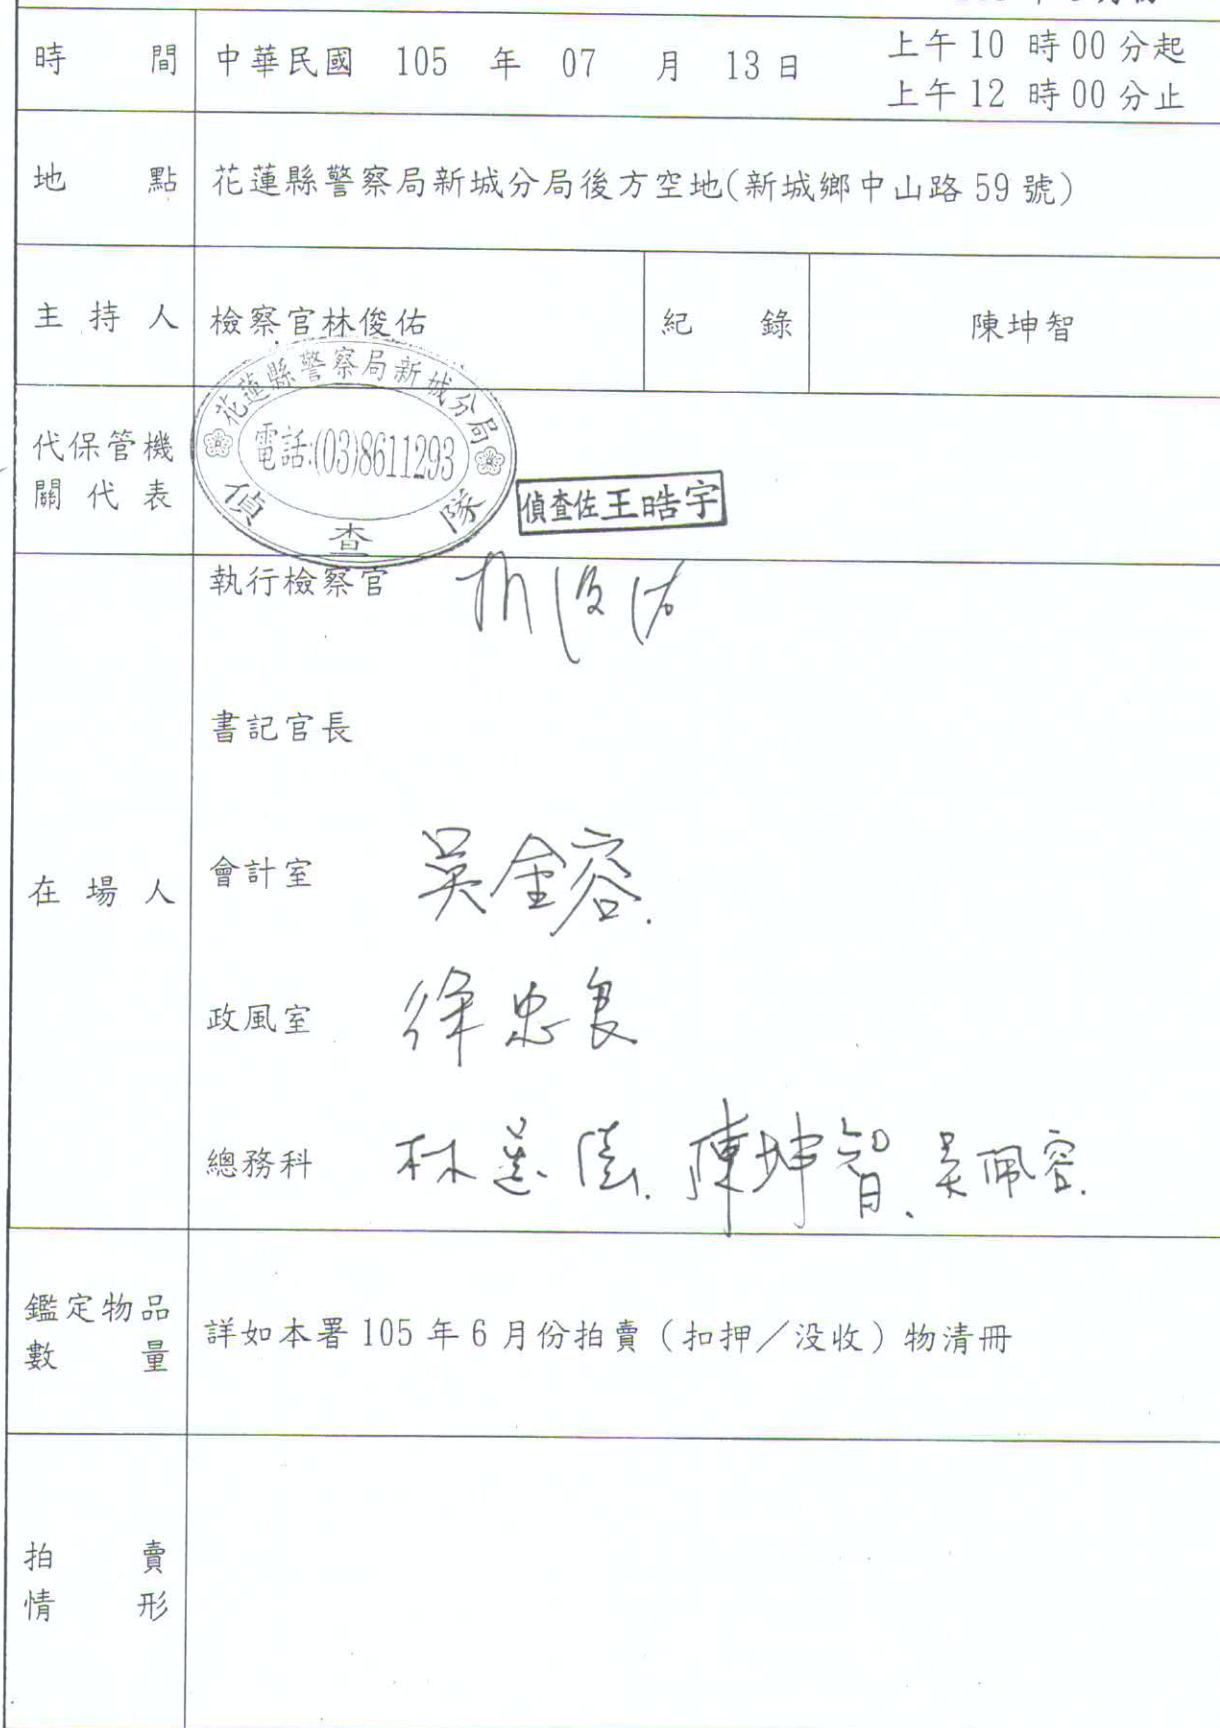 時 間 中華民國 105 年 07 月 13 日 上午 10 時 00 分起
上午 12 時 00 分止
地 點 花蓮縣警察局新城分局後方空地(新城鄉中山路 59 號)
主 持 人 檢察官林俊佑 紀 錄 陳坤智
代保管機
關 代 表
花蓮縣警察局新城分局
電話:(03)8611293
偵 查 隊
偵查佐王皓宇
在 場 人
執行檢察官 林俊佑
書記官長
會計室 吳金容.
政風室 徐忠良
總務科 林 陳坤智、吳佩容.
鑑定物品
數 量
詳如本署 105 年 6 月份拍賣（扣押／没收）物清冊
拍 賣
情 形